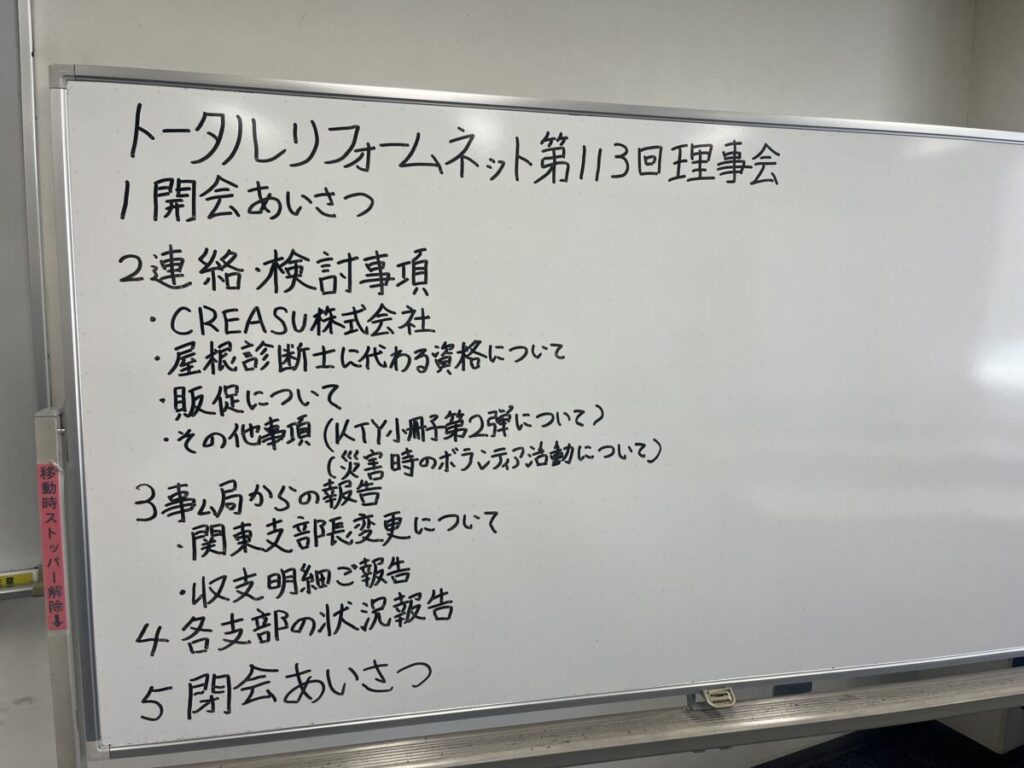 トータルリフォームネット第113回理事会
1 開会あいさつ
2 連絡・検討事項
・CREASU株式会社
・屋根診断士に代わる資格について
・販促について
・その他事項(KTY小冊子第2弾について)
(災害時のボランティア活動について)
3 事ム局からの報告
・関東支部長変更について
・収支明細ご報告
4 各支部の状況報告
5 閉会あいさつ
移動時ストッパー解除↓